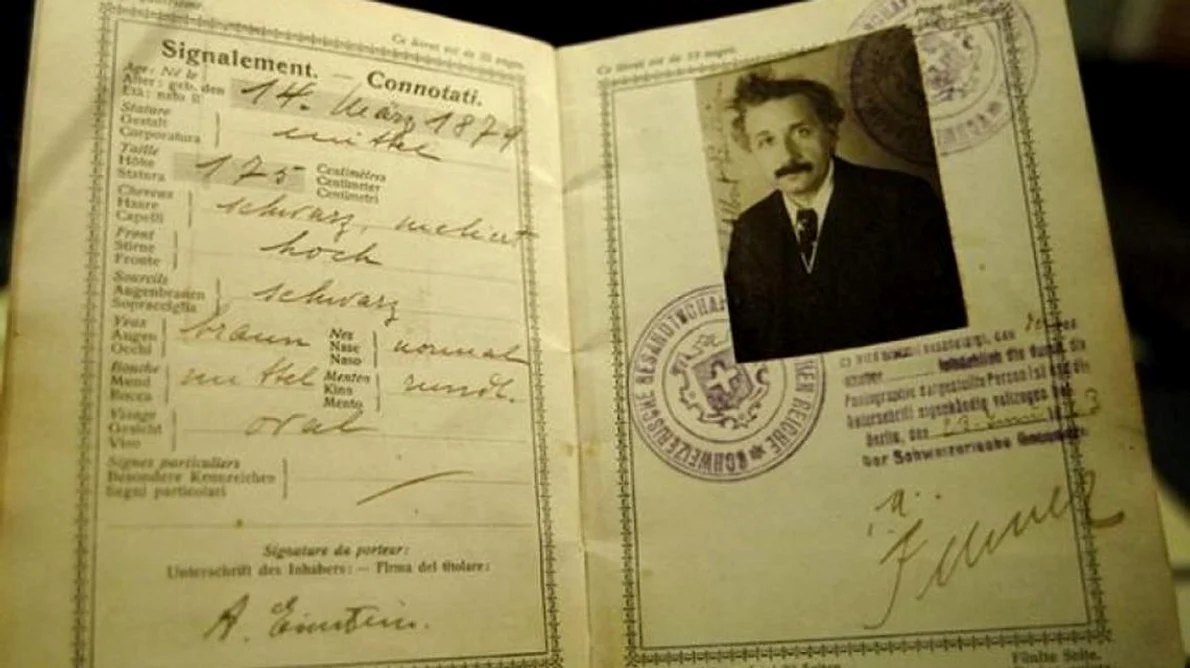 Ce livret est de 32 pages.
Signalement. — Connotati.
Age: Né le
Alter: geb. den
Età: nato il
14. März 1879
Stature
Gestalt
Corporatura
mittel
Taille
Höhe
Statura
175
Centimètres
Centimeter
Centimetri
Cheveux
Haare
Capelli
schwarz, meliert
Front
Stirne
Fronte
hoch
Sourcils
Augenbrauen
Sopracciglia
schwarz
Yeux
Augen
Occhi
braun
Nez
Nase
Naso
normal
Bouche
Mund
Bocca
mittel
Menton
Kinn
Mento
rundl.
Visage
Gesicht
Viso
oval
Signes particuliers
Besondere Kennzeichen
Segni particolari
Signature du porteur:
Unterschrift des Inhabers: — Firma del titolare:
A. Einstein.
Ce livret est de 32 pages.
SCHWEIZERISCHE GESANDTSCHAFT
REICHE
Photographie dargestellte Person ist und die
Unterschrift eigenhändig vollzogen hat.
Berlin, den
Der Schweizerische Gesandte:
Fünfte Seite.